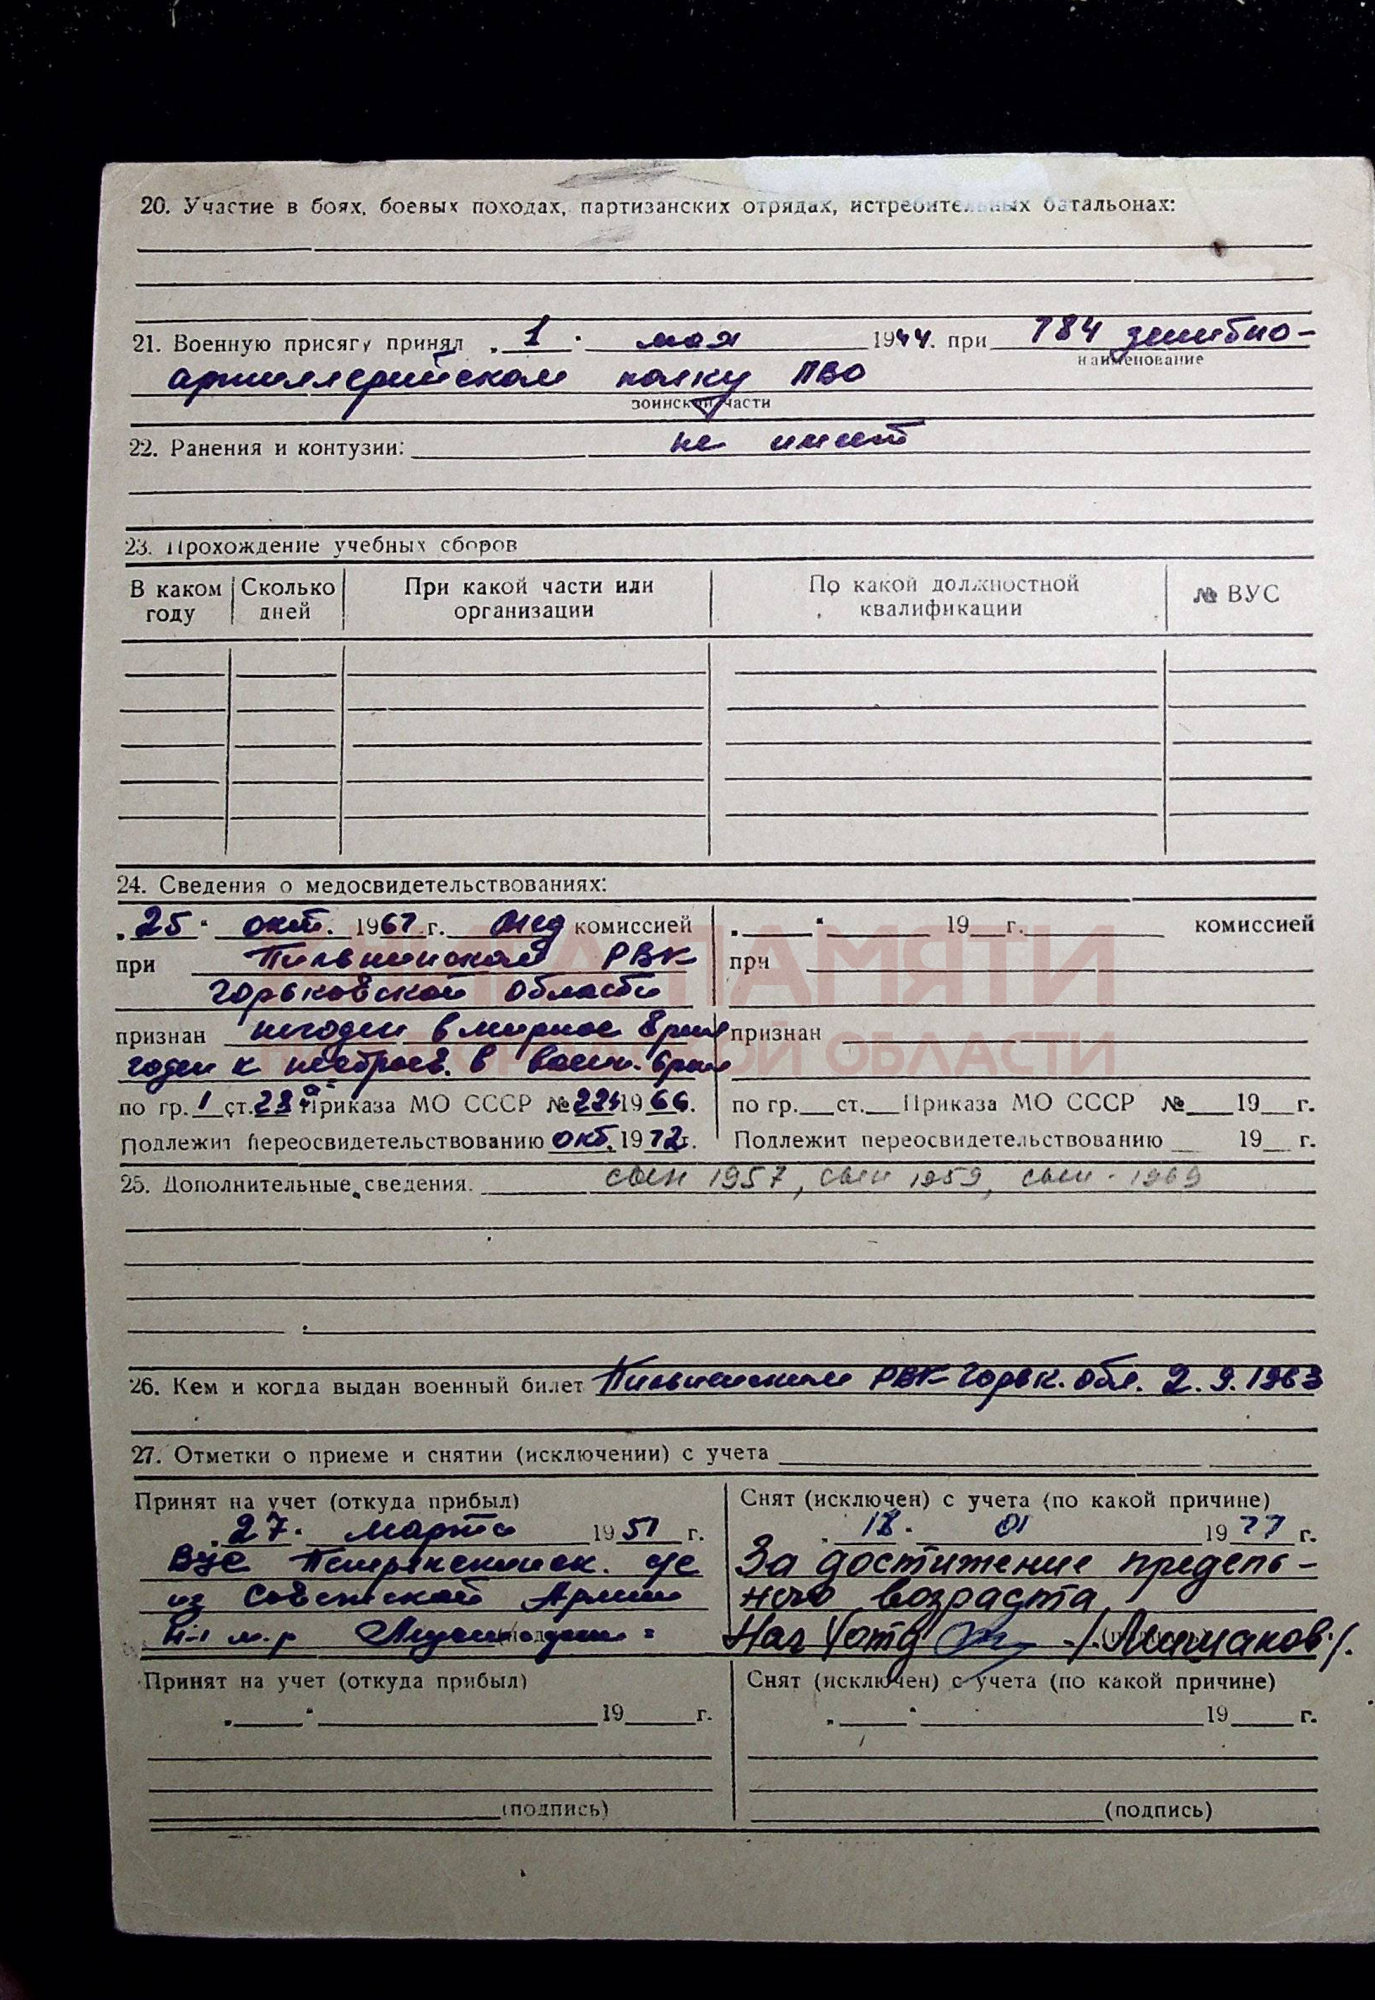 20. Участие в боях, боевых походах, партизанских отрядах, истребительных батальонах:
21. Военную присягу принял „ 1 " мая 1944. при 784 зенитно-
наименование
артиллерийском полку ПВО
воинской части
22. Ранения и контузии: не имеет
23. Прохождение учебных сборов
В каком году Сколько дней При какой части или организации По какой должностной квалификации № ВУС
24. Сведения о медосвидетельствованиях:
„ 25 " окт. 1967 г. Мед комиссией
при Пильнинском РВК
Горьковской области
признан негоден в мирное время
годен к нестроев. в воен. время
по гр. 1 ст. 23 а Приказа МО СССР № 224 1966.
Подлежит переосвидетельствованию окт. 1972 г.
„ " 19 г. комиссией
при
признан
по гр. ст. Приказа МО СССР № 19 г.
Подлежит переосвидетельствованию 19 г.
ПАМЯТИ
ОБЛАСТИ
25. Дополнительные сведения. сын 1957, сын 1959, сын - 1969
26. Кем и когда выдан военный билет Пильнинским РВК Горьк. обл. 2.9.1963
27. Отметки о приеме и снятии (исключении) с учета
Принят на учет (откуда прибыл)
„ 27 " марта 1951 г.
ВУС
из Советской Армии
Снят (исключен) с учета (по какой причине)
„ 18 " 01 1977 г.
За достижение предель-
ного возраста
Нач 4 отд
Принят на учет (откуда прибыл)
„ " 19 г.
(подпись)
Снят (исключен) с учета (по какой причине)
„ " 19 г.
(подпись)